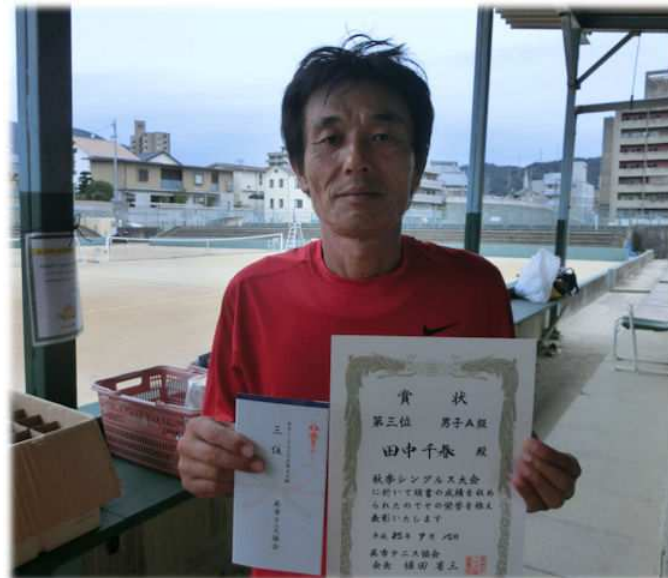 賞状
第三位 男子A級
田中千春 殿
秋季シングルス大会
に於いて頭書の成績を収め
られたのでその栄誉を称え
表彰いたします
平成 25年 9月 15日
呉市テニス協会
三位
呉市テニス協会